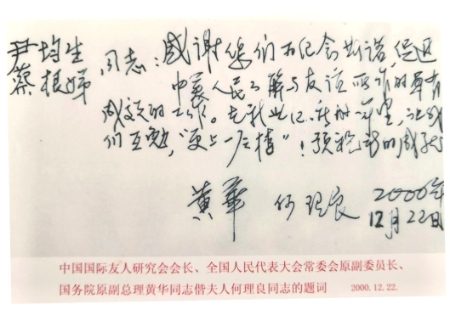 尹均生
蔡根娣 同志：感谢你们为纪念斯诺，促进
中美人民了解与友谊所作的卓有
成效的工作。在新世纪，新的一年里，让我
们互勉，"更上一层楼"！预祝新的成就
黄华 何理良 2000年
12月22日
中国国际友人研究会会长、全国人民代表大会常委会原副委员长、
国务院原副总理黄华同志偕夫人何理良同志的题词 2000.12.22.